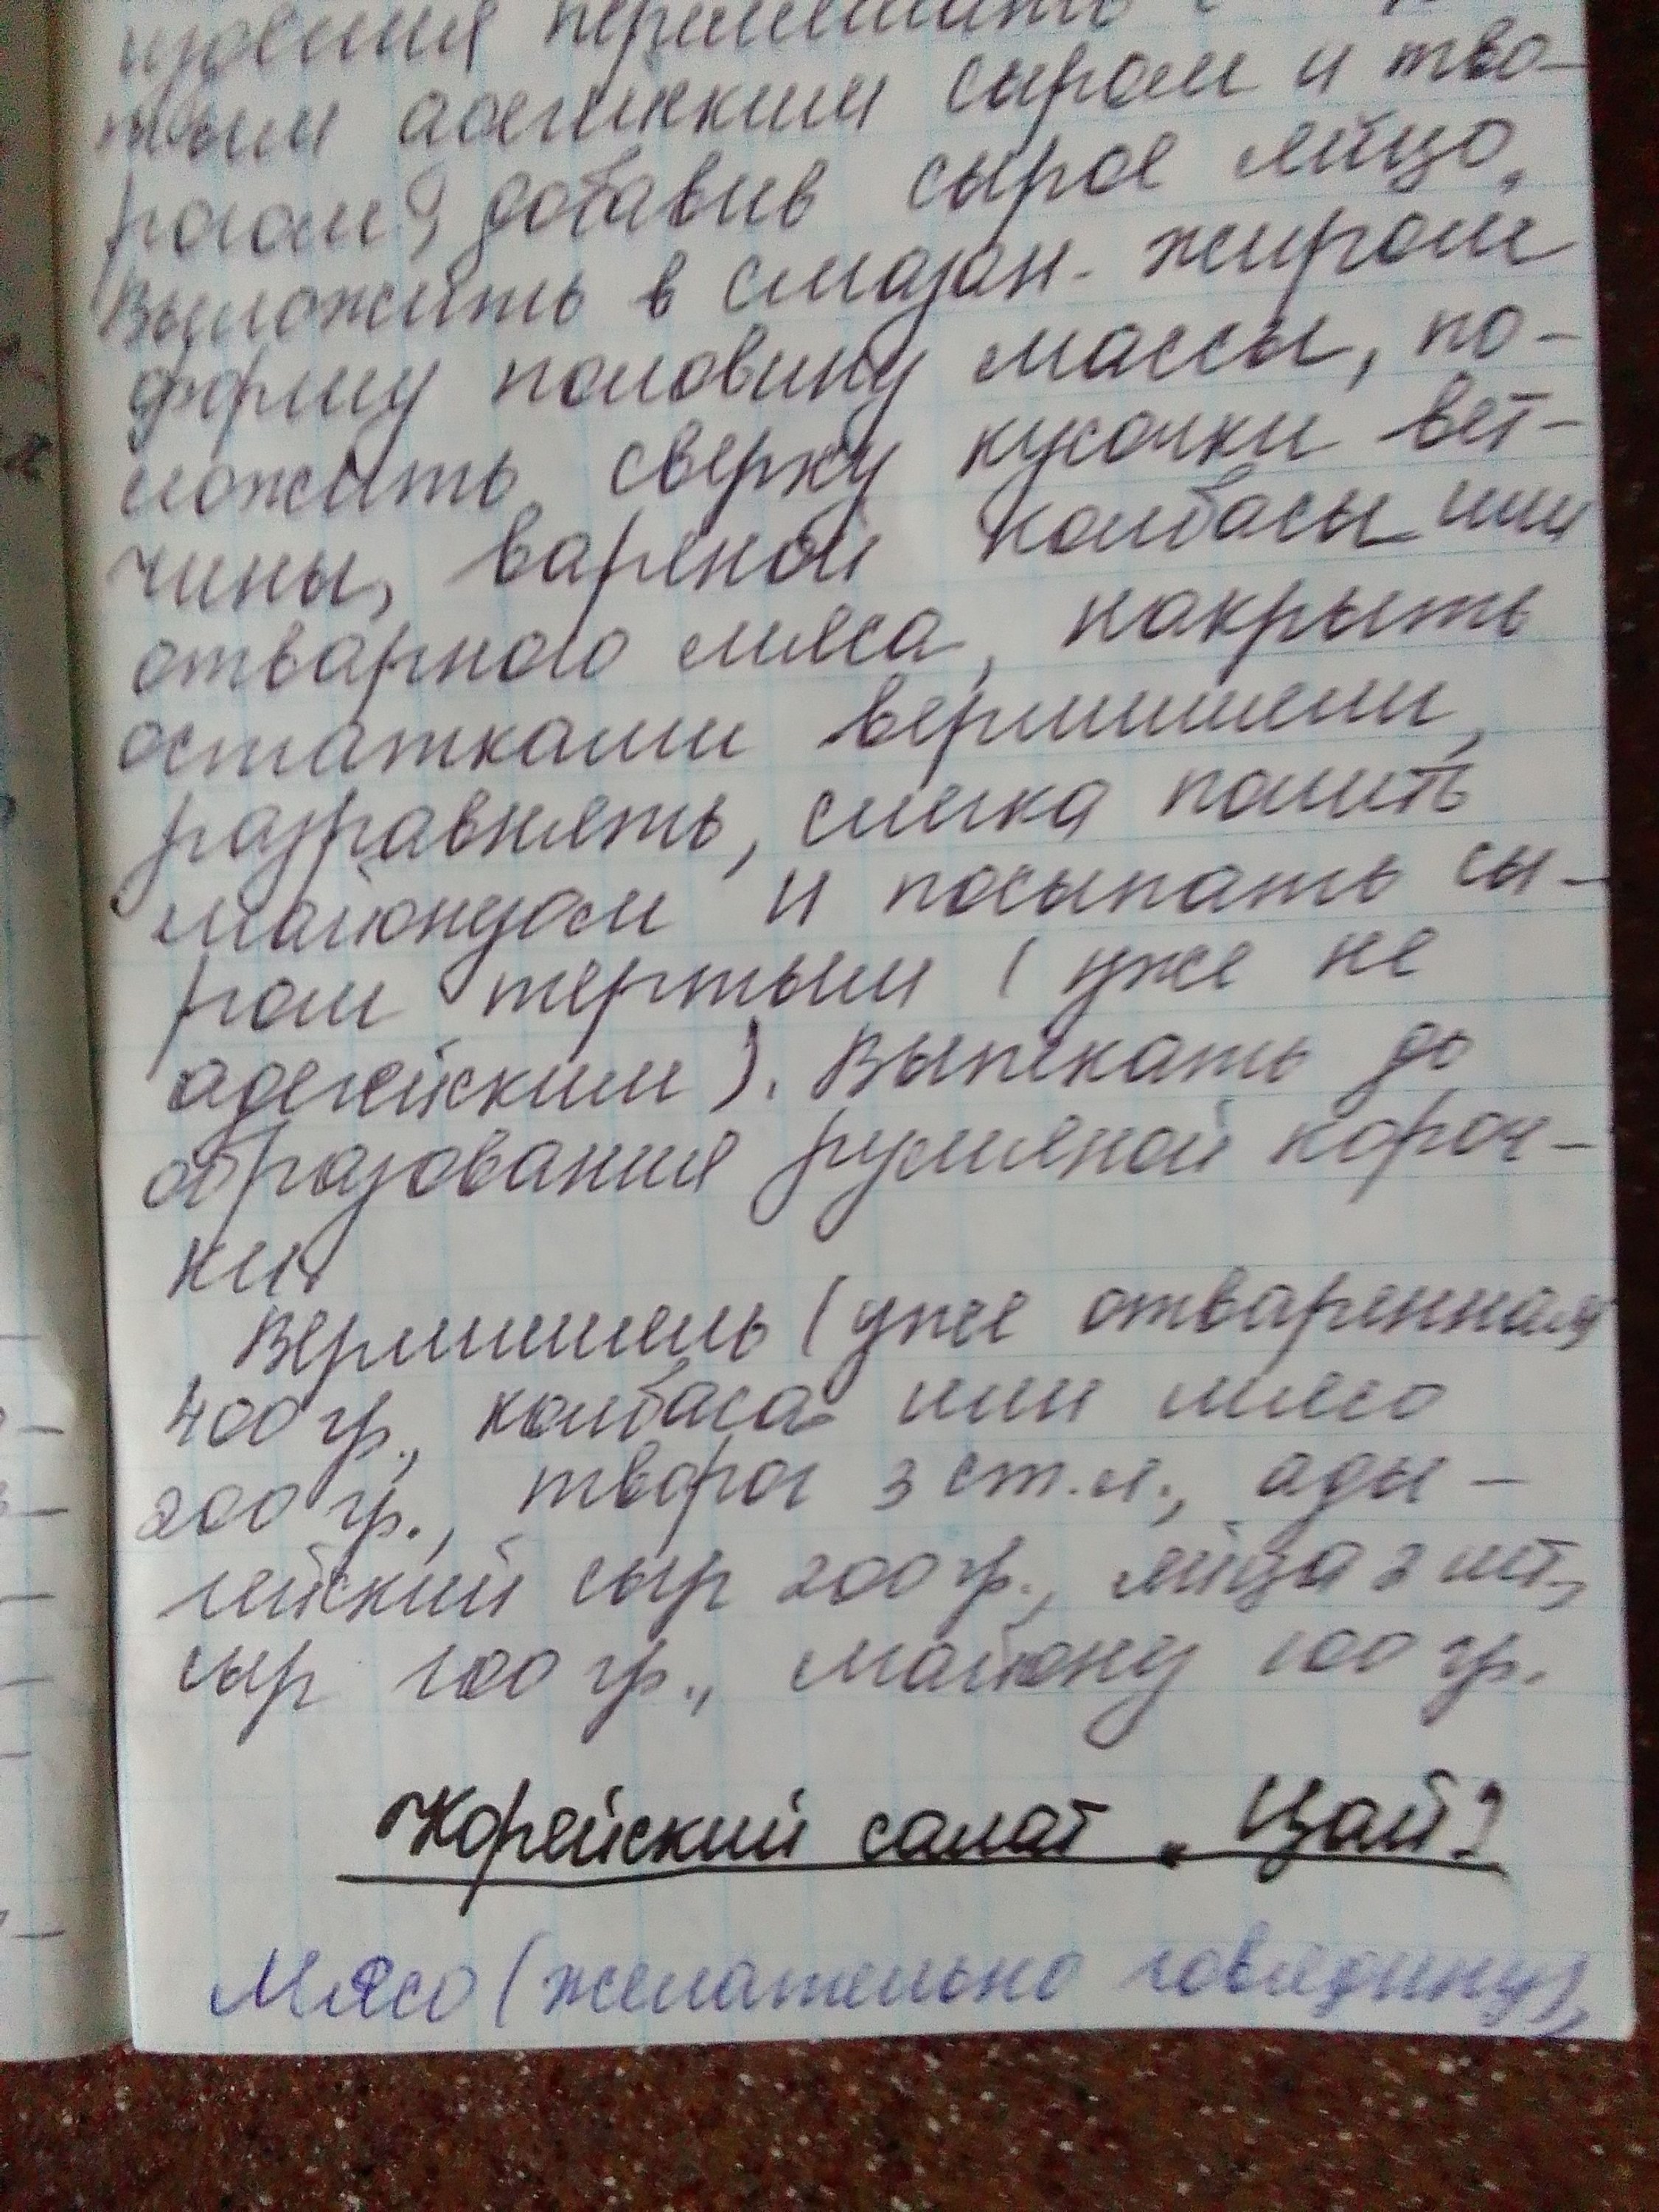 перемешать с
тым адегейским сыром и тво-
рогом, добавив сырое яйцо.
Выложить в смазан. жиром
форму половину массы, по-
ложить сверху кусочки вет-
чины, вареной колбасы или
отварного мяса, накрыть
остатками вермишели,
разравнять, слегка полить
майонзом и посыпать сы-
ром тертым (уже не
адегейским). Выпекать до
образования румяной короч-
ки.
Вермишель (уже отваренная
400 гр., колбаса или мясо
200 гр., творог 3 ст.л., ады-
гейский сыр 200 гр., яйца 2 шт.,
сыр 100 гр., майонз 100 гр.
Корейский салат „Цай"
Мясо (желательно говядину),